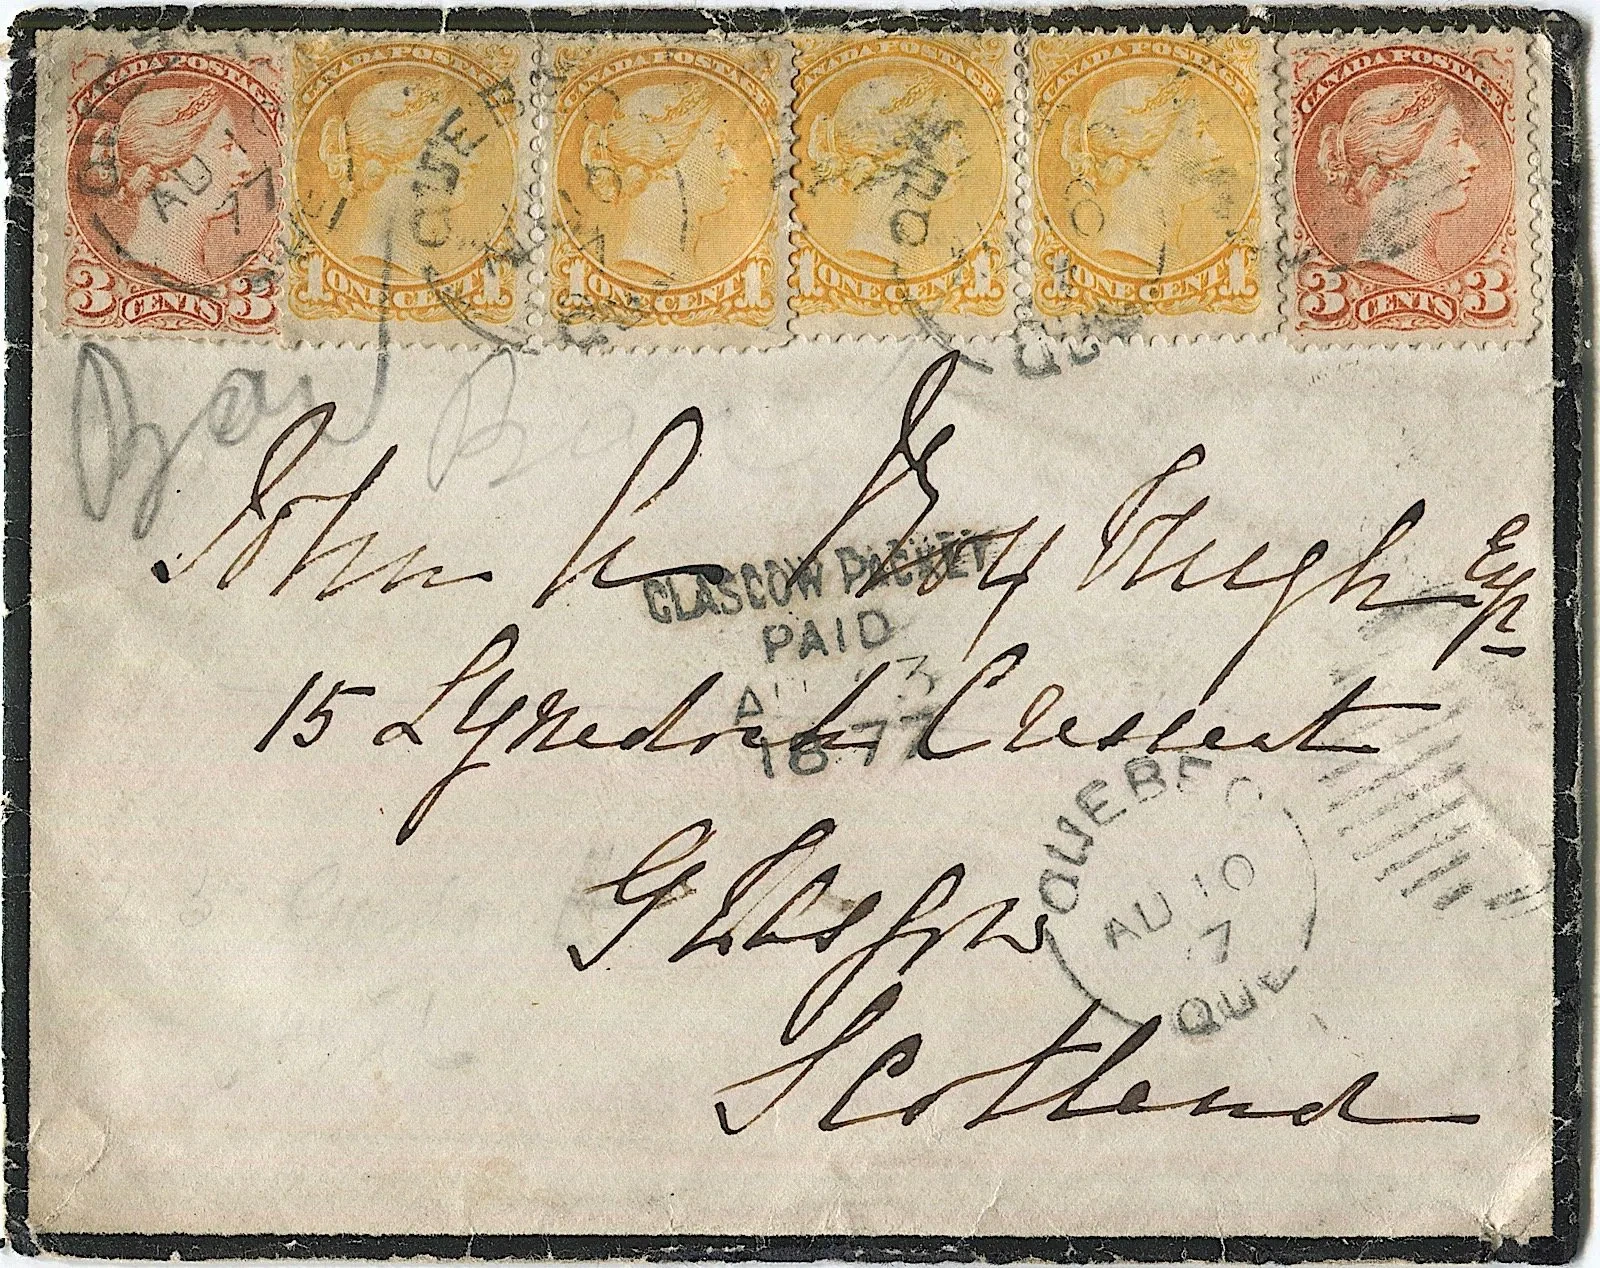 CANADA POSTAGE
3 CENTS 3
CANADA POSTAGE
1 ONE CENT 1
CANADA POSTAGE
1 ONE CENT 1
CANADA POSTAGE
1 ONE CENT 1
CANADA POSTAGE
1 ONE CENT 1
CANADA POSTAGE
3 CENTS 3
QUEBEC
AU 10
77
QUE
John
Esq
GLASGOW PACKET
PAID
AU 23
1877
15 Lynedoch Crescent
Glasgow
Scotland
QUEBEC
AU 10
7
QUE